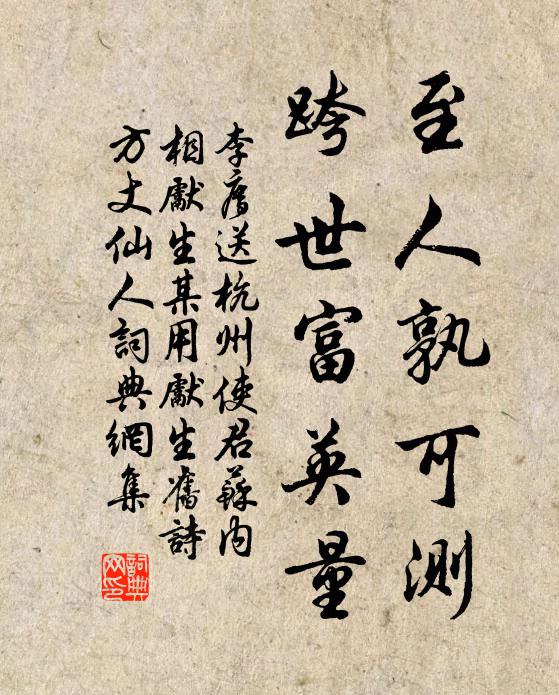 至人孰可測
跨世富英量
李廌送杭州使君蘇内
相獻生某用獻生舊詩
方丈仙人詞典網集
詞典
网印